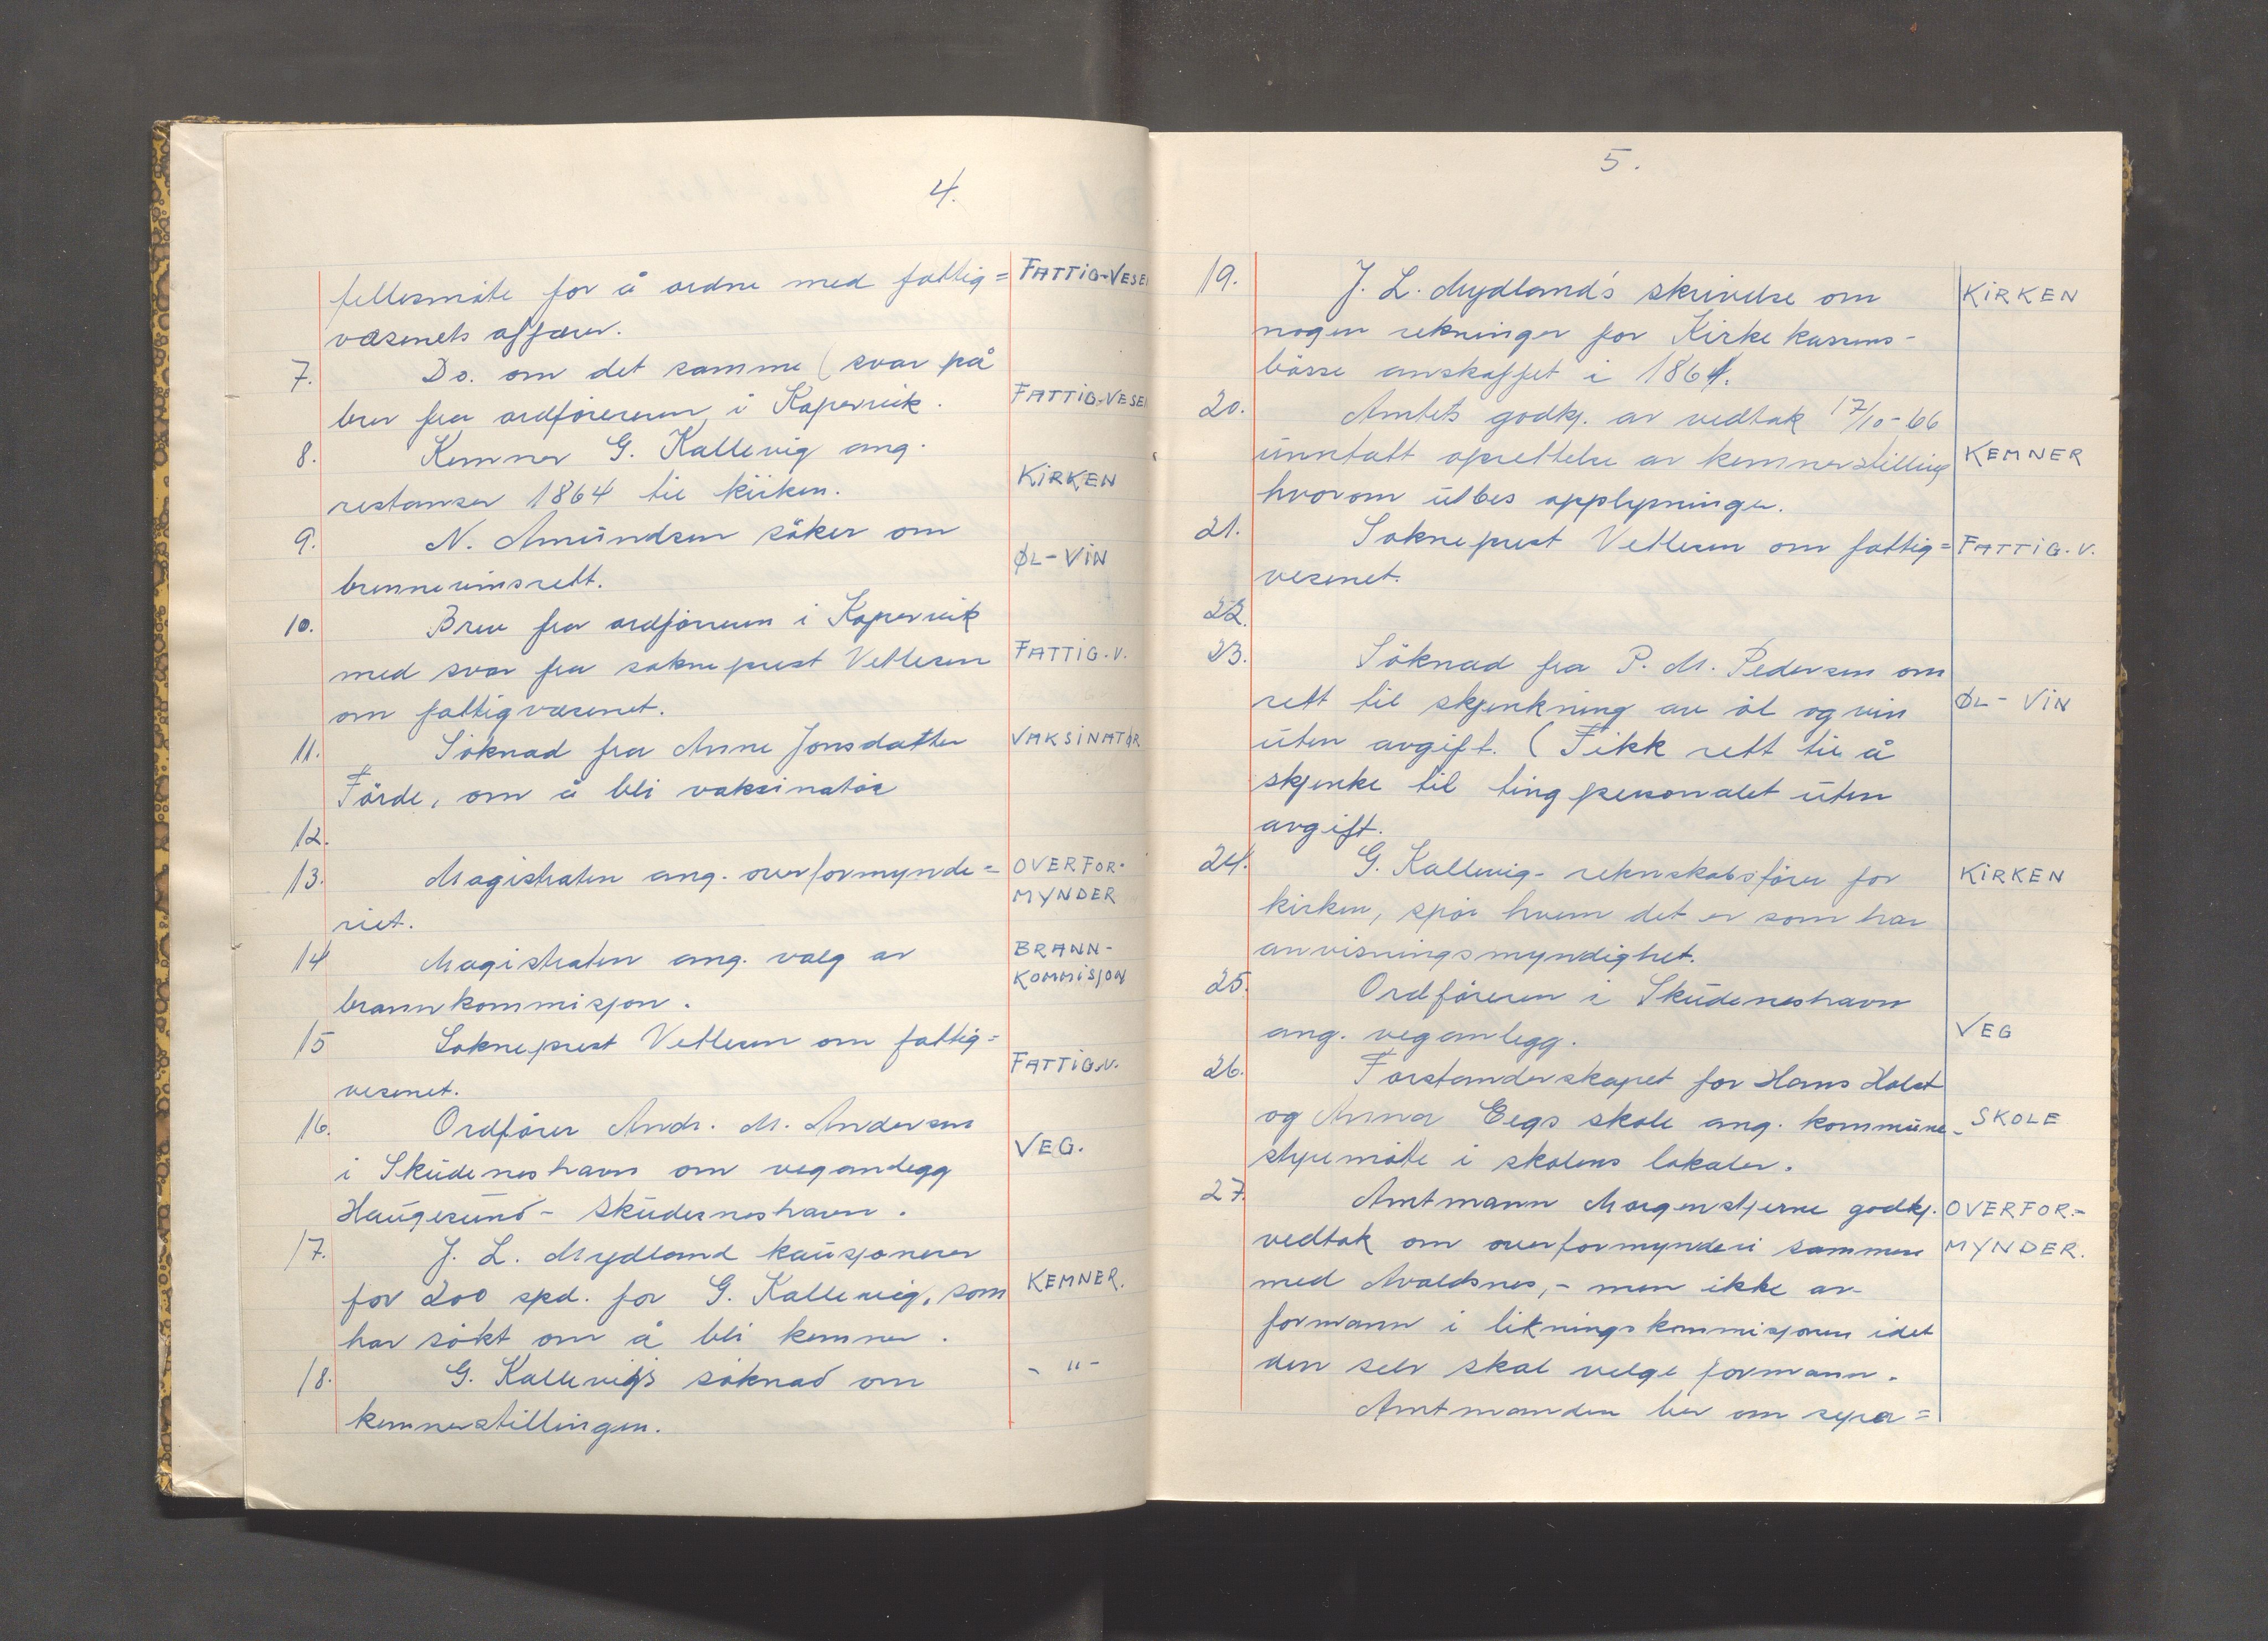 4.
fellesmöte for å ordne med fattig= FATTIG-VESE
væsenets affærer.
7. Do. om det samme (svar på
brev fra ordföreren i Kopervik. FATTIG-VESE
8. Kemner G. Kallevig ang.
restanser 1864 til kirken. KIRKEN
9. N. Amundsen söker om
brennevinsrett. ØL-VIN
10. Brev fra ordföreren i Kopervik
med svar fra sokneprest Vetlesen FATTIG.V.
om fattigvæsenet.
11. Söknad fra Anne Jonsdatter VAKSINATØR
Förde, om å bli vaksinatör
12.
13. Magistraten ang. overformynde= OVERFOR-
MYNDER
riet.
14 Magistraten ang. valg av BRANN-
KOMMISJON
brannkommisjon.
15 Sokneprest Vetlesen om fattig=
vesenet. FATTIG.V.
16. Ordförer Andr. M. Andersen
i Skudeneshavn om veganlegg VEG.
Haugesund - Skudesneshavn.
17. J. L. Mydland kausjonerer
for 200 spd. for G. Kallevig, som KEMNER.
har sökt om å bli kemner.
18. G. Kallevig's söknad om - " -
kemnerstillingen.
5.
19. J. L. Mydland's skrivelse om KIRKEN
nogen rekninger for Kirkekassens-
börse anskaffet i 1864.
20. Amtets godkj. av vedtak 17/10-66
unntatt oprettelse av kemnerstilling KEMNER
hvorom utbes opplysninger.
21. Sokneprest Vetlesen om fattig= FATTIG.V.
vesenet.
22.
23. Söknad fra P. M. Pedersen om
rett til skjenkning av öl og vin ØL-VIN
uten avgift. (Fikk rett til å
skjenke til tingpersonalet uten
avgift.
24. G. Kallevig - reknskabsförer for KIRKEN
kirken, spör hvem det er som har
anvisningsmyndighet.
25. Ordföreren i Skudeneshavn
ang. veganlegg. VEG
26. Forstanderskapet for Hans Holst
og Anna Eegs skole ang. kommune- SKOLE
styremöte i skolens lokaler.
27. Amtmann Morgenstjerne godkj. OVERFOR.-
vedtak om overformynderi sammen MYNDER.
med Avaldsnes, - men ikke av
formann i likningskommisjonen idet
den selv skal velge formann.
Amtmanden ber om sepa=